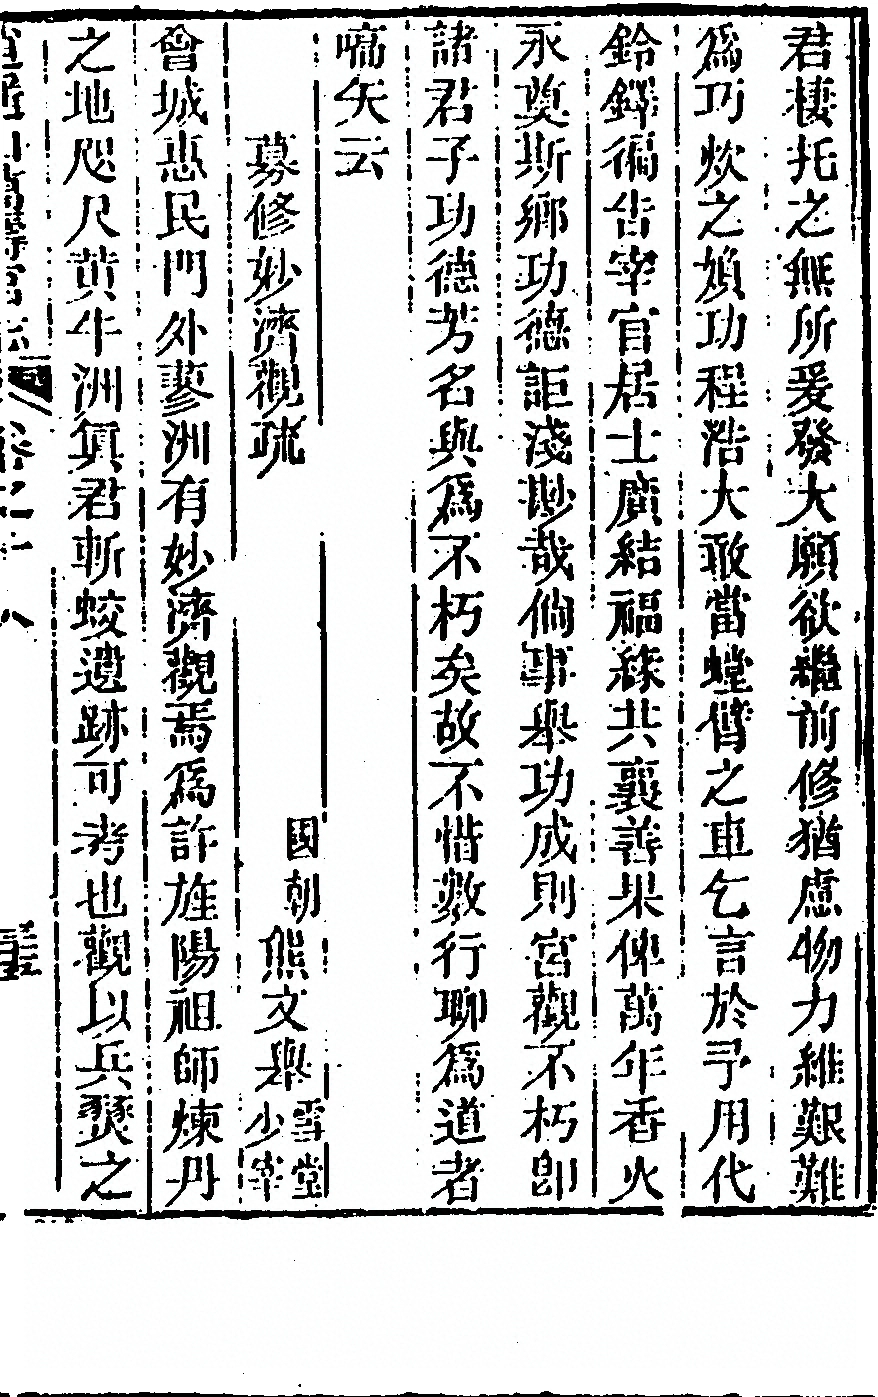 君棲托之無所爰發大願欲繼前修猶慮物力維艱難
爲巧炊之婦功程浩大敢當螳臂之車乞言於予用代
鈴鐸徧告宰官居士廣結福緣共襄善果俾萬年香火
永奠斯鄉功德詎淺尠哉倘事舉功成則宮觀不朽卽
諸君子功德芳名與爲不朽矣故不惜敷行聊爲道者
嚆矢云
募修妙濟觀疏
國朝熊文舉雪堂少宰
會城惠民門外蓼洲有妙濟觀焉爲許旌陽祖師煉丹
之地咫尺黃牛洲眞君斬蛟遺跡可考也觀以兵燹之
卷之十八